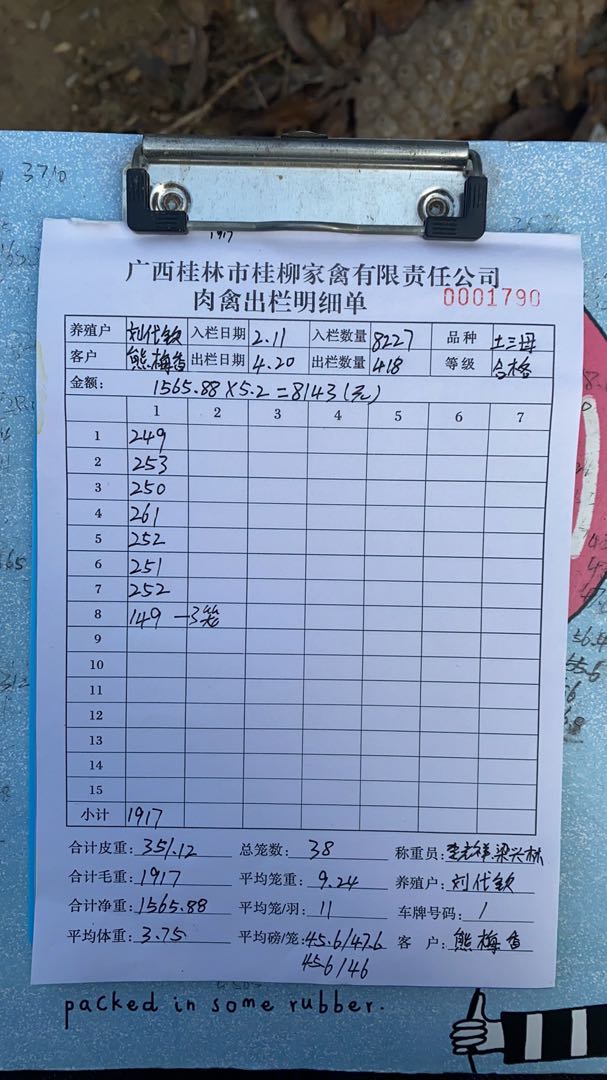 3710
1917
广西桂林市桂柳家禽有限责任公司
肉禽出栏明细单 0001790
养殖户 刘代钦 入栏日期 2.11 入栏数量 8227 品种 土三母
客户 熊梅香 出栏日期 4.20 出栏数量 418 等级 合格
金额: 1565.88×5.2=8143(元)
1 2 3 4 5 6 7
1 249
2 253
3 250
4 261
5 252
6 251
7 252
8 149 —3笼
9
10
11
12
13
14
15
小计 1917
合计皮重: 351.12 总笼数: 38 称重员: 梁兴林
合计毛重: 1917 平均笼重: 9.24 养殖户: 刘代钦
合计净重: 1565.88 平均笼/羽: 11 车牌号码: /
平均体重: 3.75 平均磅/笼: 45.6/47.6 客户: 熊梅香
45.6/46
packed in some rubber.